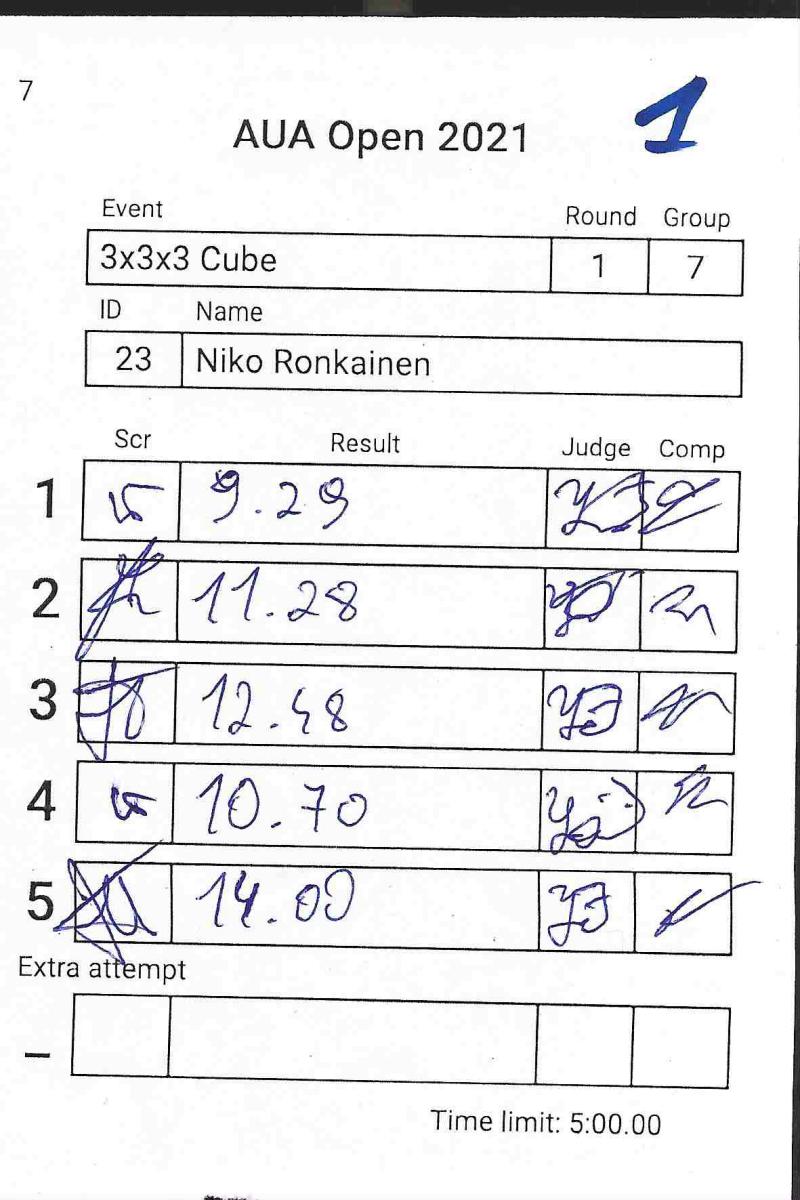 7
AUA Open 2021 1
Event Round Group
3x3x3 Cube 1 7
ID Name
23 Niko Ronkainen
Scr Result Judge Comp
1 9.29
2 11.28
3 12.48
4 10.70
5 14.00
Extra attempt
–
Time limit: 5:00.00